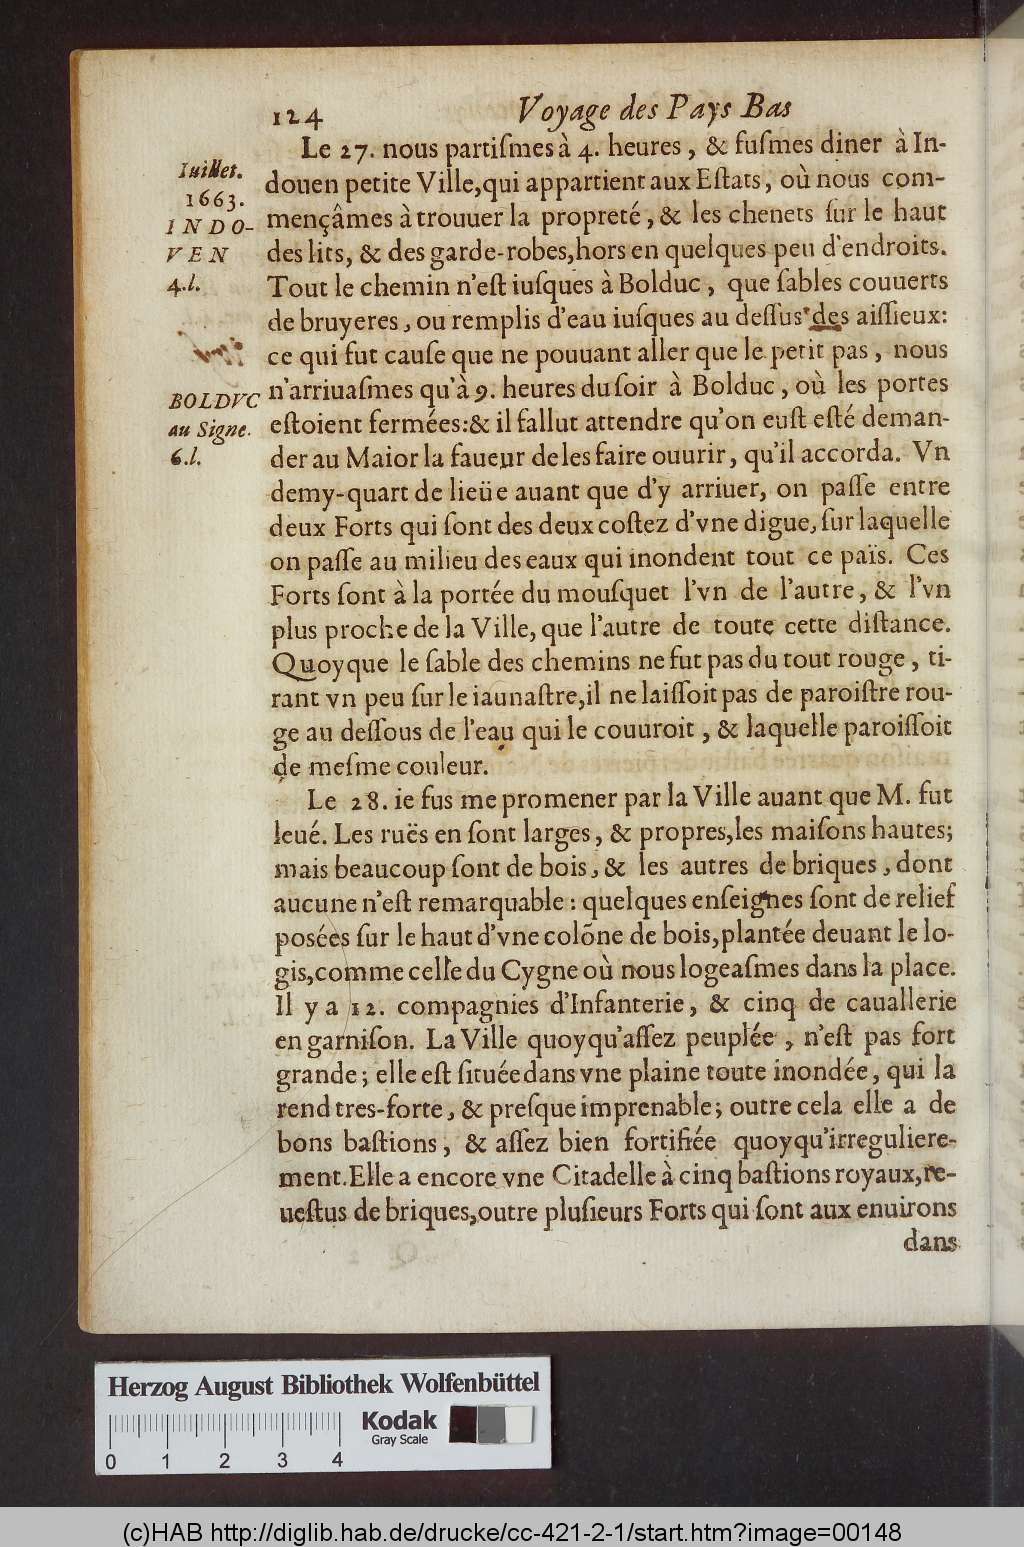 124 Voyage des Pays Bas
Iuillet.
1663.
INDO-
VEN
4.l.
BOLDVC
au Signe.
6.l.
Le 27. nous partiſmes à 4. heures, & fuſmes diner à In-
douen petite Ville, qui appartient aux Eſtats, où nous com-
mençâmes à trouuer la propreté, & les chenets ſur le haut
des lits, & des garde-robes, hors en quelques peu d'endroits.
Tout le chemin n'eſt iuſques à Bolduc, que ſables couuerts
de bruyeres, ou remplis d'eau iuſques au deſſus des aiſſieux:
ce qui fut cauſe que ne pouuant aller que le petit pas, nous
n'arriuaſmes qu'à 9. heures du ſoir à Bolduc, où les portes
eſtoient fermées: & il fallut attendre qu'on euſt eſté deman-
der au Maior la faueur de les faire ouurir, qu'il accorda. Vn
demy-quart de lieüe auant que d'y arriuer, on paſſe entre
deux Forts qui ſont des deux coſtez d'vne digue, ſur laquelle
on paſſe au milieu des eaux qui inondent tout ce païs. Ces
Forts ſont à la portée du mouſquet l'vn de l'autre, & l'vn
plus proche de la Ville, que l'autre de toute cette diſtance.
Quoyque le ſable des chemins ne fut pas du tout rouge, ti-
rant vn peu ſur le iaunaſtre, il ne laiſſoit pas de paroiſtre rou-
ge au deſſous de l'eau qui le couuroit, & laquelle paroiſſoit
de meſme couleur.
Le 28. ie fus me promener par la Ville auant que M. fut
leué. Les ruës en ſont larges, & propres, les maiſons hautes;
mais beaucoup ſont de bois, & les autres de briques, dont
aucune n'eſt remarquable: quelques enſeignes ſont de relief
posées ſur le haut d'vne colõne de bois, plantée deuant le lo-
gis, comme celle du Cygne où nous logeaſmes dans la place.
Il y a 12. compagnies d'Infanterie, & cinq de cauallerie
en garniſon. La Ville quoyqu'aſſez peuplée, n'eſt pas fort
grande; elle eſt ſituée dans vne plaine toute inondée, qui la
rend tres-forte, & preſque imprenable; outre cela elle a de
bons baſtions, & aſſez bien fortifiée quoyqu'irreguliere-
ment. Elle a encore vne Citadelle à cinq baſtions royaux, re-
ueſtus de briques, outre pluſieurs Forts qui ſont aux enuirons
dans
Herzog August Bibliothek Wolfenbüttel
Kodak
Gray Scale
0 1 2 3 4
(c)HAB http://diglib.hab.de/drucke/cc-421-2-1/start.htm?image=00148